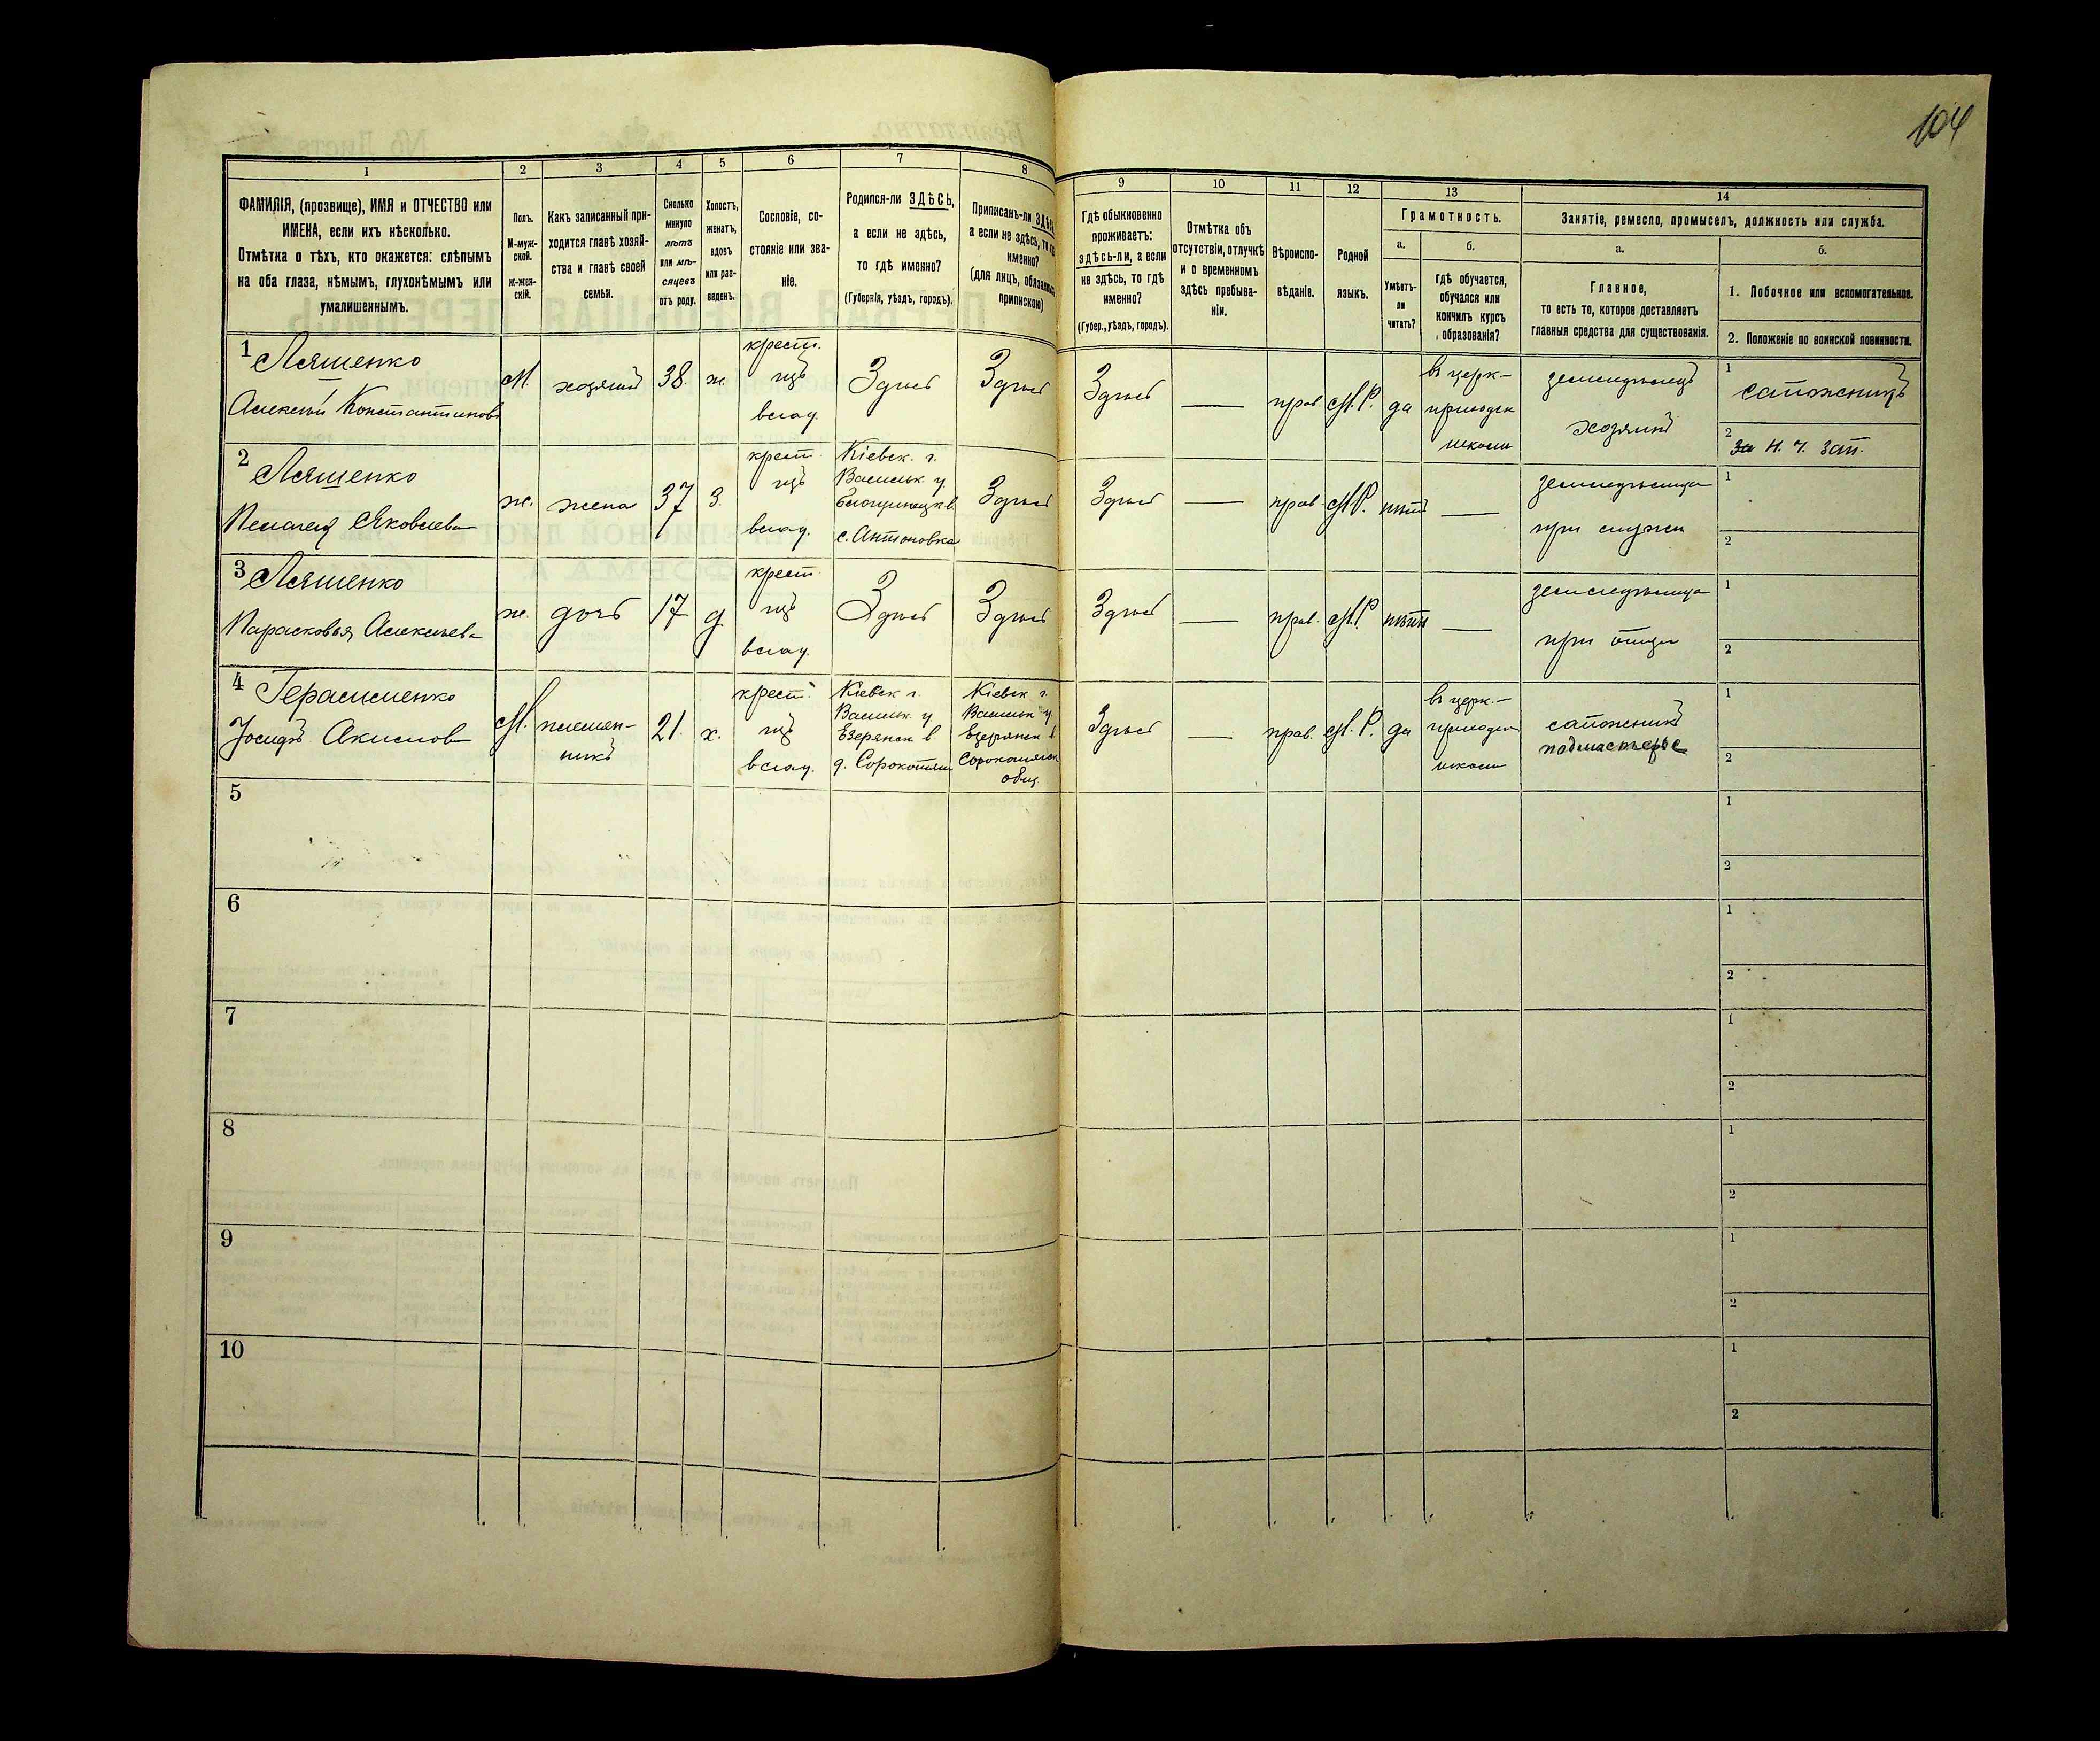 104
1
2
3
4
5
6
7
8
9
10
11
12
13
14
ФАМИЛІЯ, (прозвище), ИМЯ и ОТЧЕСТВО или
ИМЕНА, если ихъ нѣсколько.
Отмѣтка о тѣхъ, кто окажется: слѣпымъ
на оба глаза, нѣмымъ, глухонѣмымъ или
умалишеннымъ.
Полъ.
М-муж-
ской.
Ж-жен-
скій.
Какъ записанный при-
ходится главѣ хозяй-
ства и главѣ своей
семьи.
Сколько
минуло
лѣтъ
или мѣ-
сяцевъ
отъ роду.
Холостъ,
женатъ,
вдовъ
или раз-
веденъ.
Сословіе, со-
стояніе или зва-
ніе.
Родился-ли ЗДѢСЬ,
а если не здѣсь,
то гдѣ именно?
(Губернія, уѣздъ, городъ).
Приписанъ-ли
а если не здѣсь, то
именно?
(для лицъ,
припискою)
Гдѣ обыкновенно
проживаетъ:
здѣсь-ли, а если
не здѣсь, то гдѣ
именно?
(Губер., уѣздъ, городъ).
Отмѣтка объ
отсутствіи, отлучкѣ
и о временномъ
здѣсь пребыва-
ніи.
Вѣроиспо-
вѣданіе.
Родной
языкъ.
Грамотность.
а.
Умѣетъ-
ли
читать?
б.
гдѣ обучается,
обучался или
кончилъ курсъ
образованія?
Занятіе, ремесло, промыселъ, должность или служба.
а.
Главное,
то есть то, которое доставляетъ
главныя средства для существованія.
б.
1. Побочное или вспомогательное.
2. Положеніе по воинской повинности.
1
Ляшенко
Алексѣй Константиновъ
М.
хозяинъ
38.
ж.
крест.
нцъ
влад.
Здѣсь
Здѣсь
Здѣсь
—
прав.
М. Р.
да
въ церк-
приходск
школѣ
земледѣлецъ
хозяинъ
1
сапожникъ
2
Н. Ч. зап.
2
Ляшенко
Пелагея Яковлева
ж.
жена
37
З.
крест.
нцъ
влад.
Кіевск. г.
Васильк у.
с. Антоновка
Здѣсь
Здѣсь
—
прав.
М. Р.
нѣтъ
—
земледѣлица
при мужѣ
1
2
3
Ляшенко
Парасковья Алексѣева
ж.
дочь
17
д.
крест.
нцъ
влад.
Здѣсь
Здѣсь
Здѣсь
—
прав.
М. Р.
нѣтъ
—
земледѣлица
при отцѣ
1
2
4
Герасименко
Іосифъ Акимовъ
М.
племян-
никъ
21.
х.
крест.
нцъ
влад.
Кіевск г.
Васильк у.
Езерянск в
д. Сорокотяги
Кіевск г.
Васильк у.
Езерянск в
Сорокотяжск
общ.
Здѣсь
—
прав.
М. Р.
да
въ церк.-
приходск
школѣ
сапожникъ
подмастерье
1
2
5
1
2
6
1
2
7
1
2
8
1
2
9
1
2
10
1
2